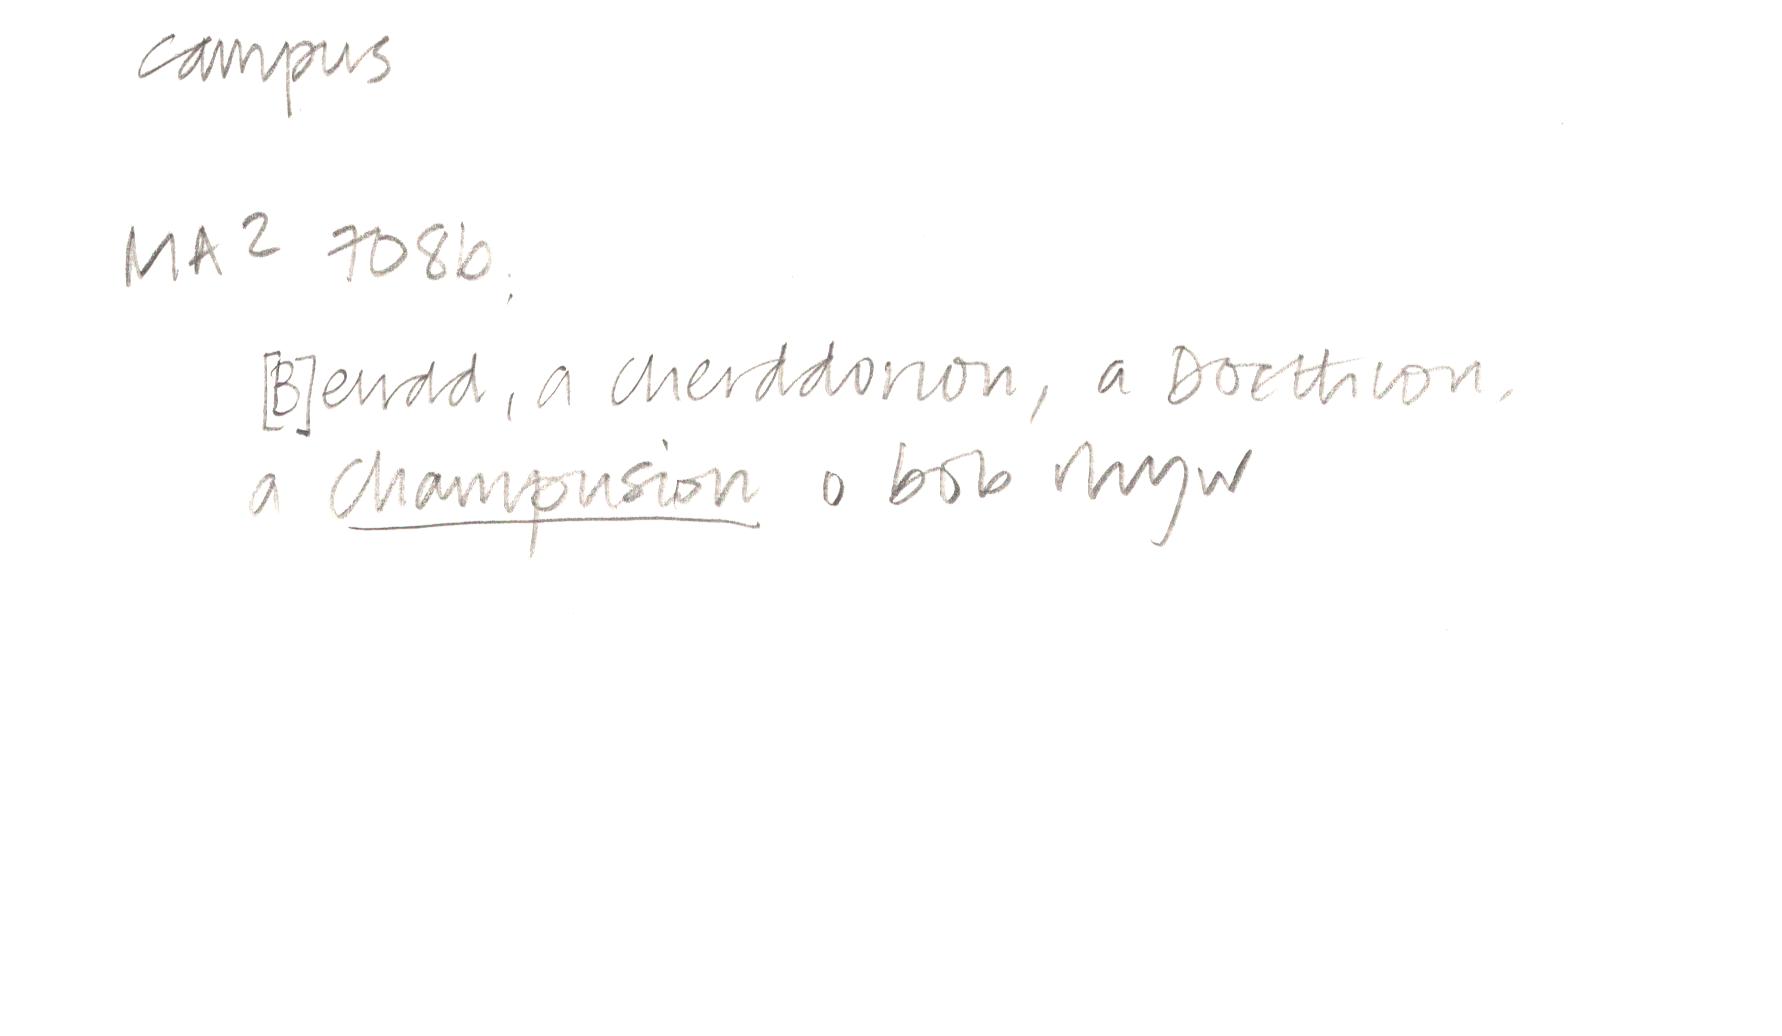 campus
MA² 708b.
[B]eirdd, a cherddorion, a Doethion,
a Champusion o bob rhyw